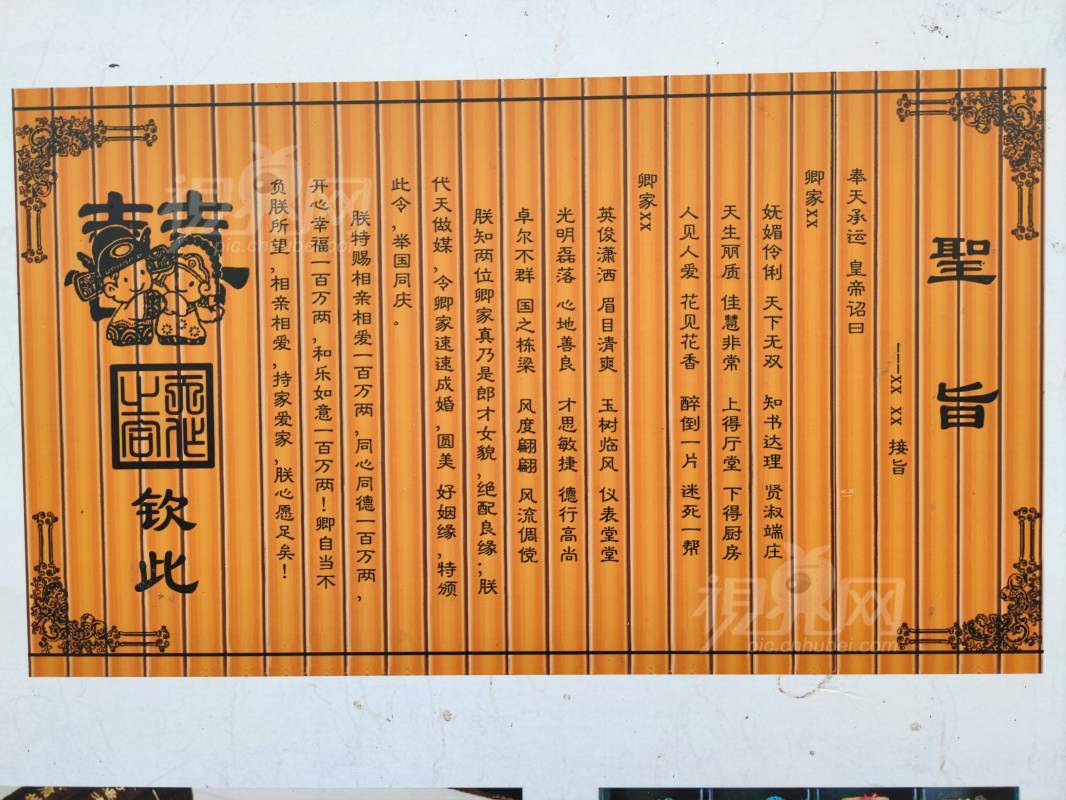 聖旨
奉天承运 皇帝诏曰
———XX XX 接旨
卿家XX
妩媚伶俐 天下无双 知书达理 贤淑端庄
天生丽质 佳慧非常 上得厅堂 下得厨房
人见人爱 花见花香 醉倒一片 迷死一帮
卿家XX
英俊潇洒 眉目清爽 玉树临风 仪表堂堂
光明磊落 心地善良 才思敏捷 德行高尚
卓尔不群 国之栋梁 风度翩翩 风流倜傥
朕知两位卿家真乃是郎才女貌,绝配良缘;朕
代天做媒,令卿家速速成婚,圆美 好姻缘,特颁
此令,举国同庆。
朕特赐相亲相爱一百万两,同心同德一百万两,
开心幸福一百万两,和乐如意一百万两!卿自当不
负朕所望,相亲相爱,持家爱家,朕心愿足矣!
囍
钦此
視界网
pic.cnhubei.com
視界网
pic.cnhubei.com